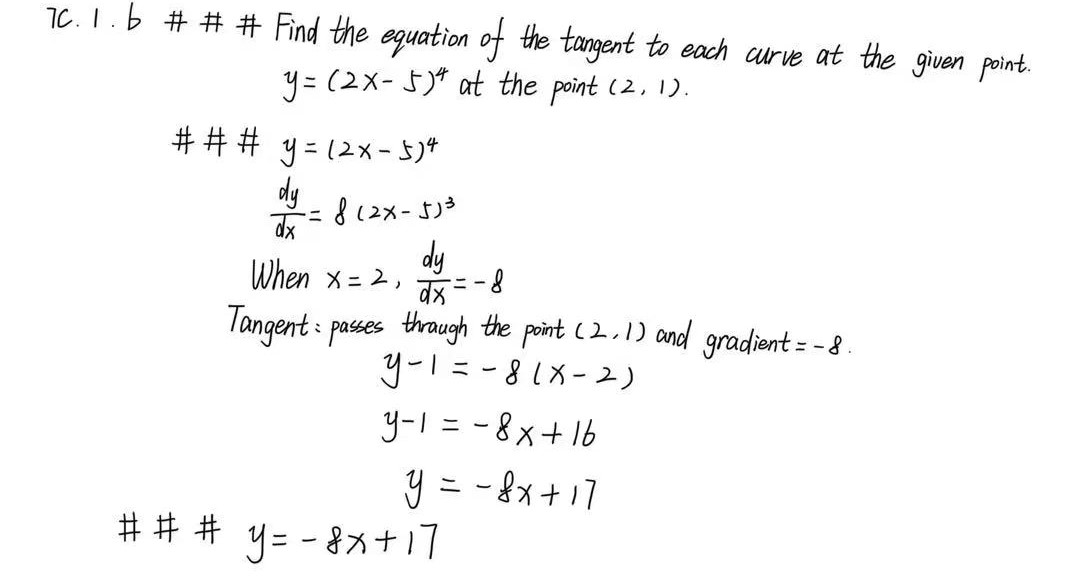 7C.1.b # # # Find the equation of the tangent to each curve at the given point.
y=(2x-5)⁴ at the point (2,1).
# # # y=(2x-5)⁴
dy/dx = 8(2x-5)³
When x=2, dy/dx = -8
Tangent: passes through the point (2,1) and gradient=-8.
y-1=-8(x-2)
y-1=-8x+16
y=-8x+17
# # # y=-8x+17